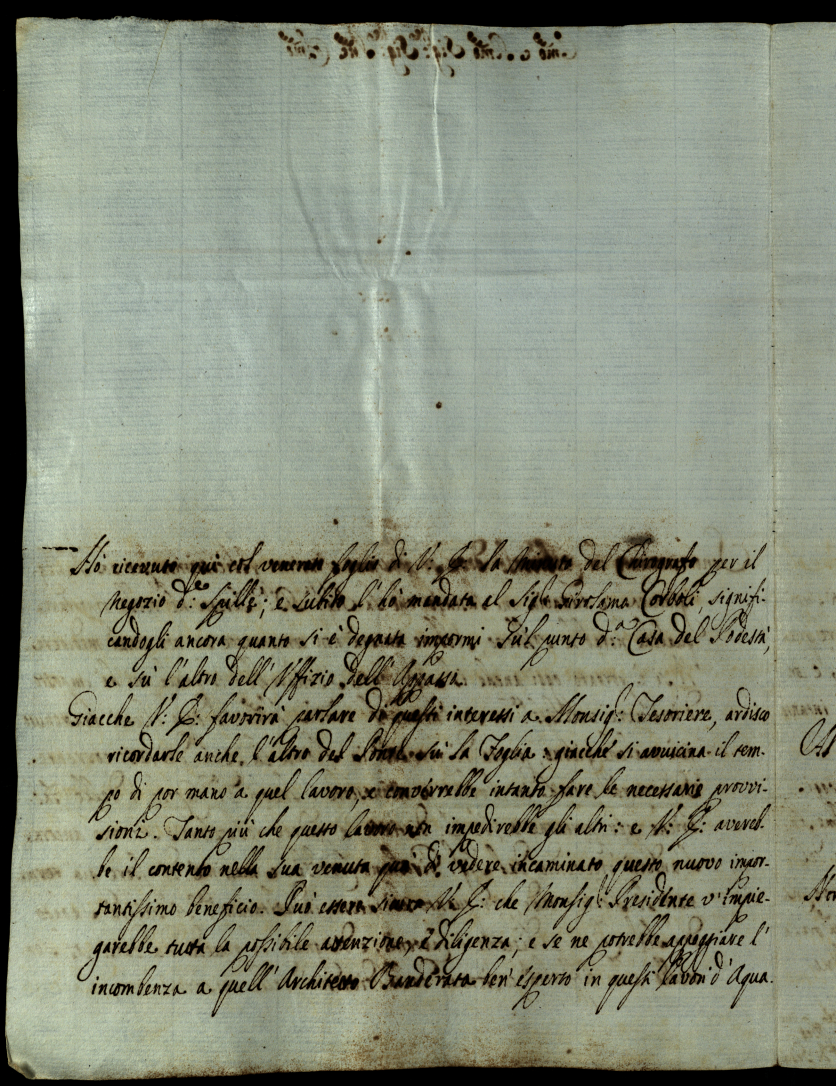 Hò riceuuto quì col venerato foglio di V: E: la minuta del Chirografo per il
negozio d:e Spille; e subito l'hò mandata al Sig:r Girolamo Corboli, signifi-
candogli ancora quanto si è degnata impormi sùl punto d:a Casa del Podestà,
e sù l'altro dell'Vffizio dell'
Giacche V: E: favorirà parlare di questi interessi a Monsig:r Tesoriere, ardisco
ricordarle anche l'altro del Ponte sù la Foglia: giacche si avuicina il tem-
po di por mano a quel lavoro, e converrebbe intanto fare le necessarie provvi-
sioni. Tanto più che questo lavoro non impedirebbe gli altri: e V: E: avereb-
be il contento nella sua venuta quà di vedere incaminato questo nuovo impor-
tantissimo beneficio. Può essere sicura V: E: che Monsig:r Presidente v'impie-
garebbe tutta la possibile attenzione, e diligenza; e se ne potrebbe appoggiare l'
incombenza a quell'Architetto Bandierata ben'esperto in questi lavori d'Aqua.